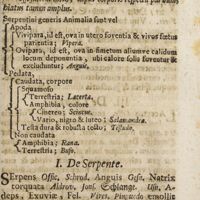 biatum tamen amplum.
Serpentini generis Animalia sunt vel
Apoda
Vivipara, id est, ova in utero foventia & vivos fœtus
parientia; Vipera.
Ovipara, id est, ova in fimetum aliumve calidum
locum deponentia, ubi calore solis foventur &
excluduntur; Anguis.
Pedata,
Caudata, corpore
Squamoso
Terrestria; Lacerta.
Amphibia, colore
Cinereo; Scincus.
Vario, nigro & luteo; Salamandra.
Testa dura & robusta tecto; Testudo.
Non caudata
Amphibia; Rana.
Terrestria; Bufo.
I. De Serpente.
SErpens Offic. Schrod. Anguis Gesn. Natrix
torquata Aldrov. Jonst. Schlange. Usu, A-
deps, Exuviæ; Fel. Vires. Pinguedo emollit